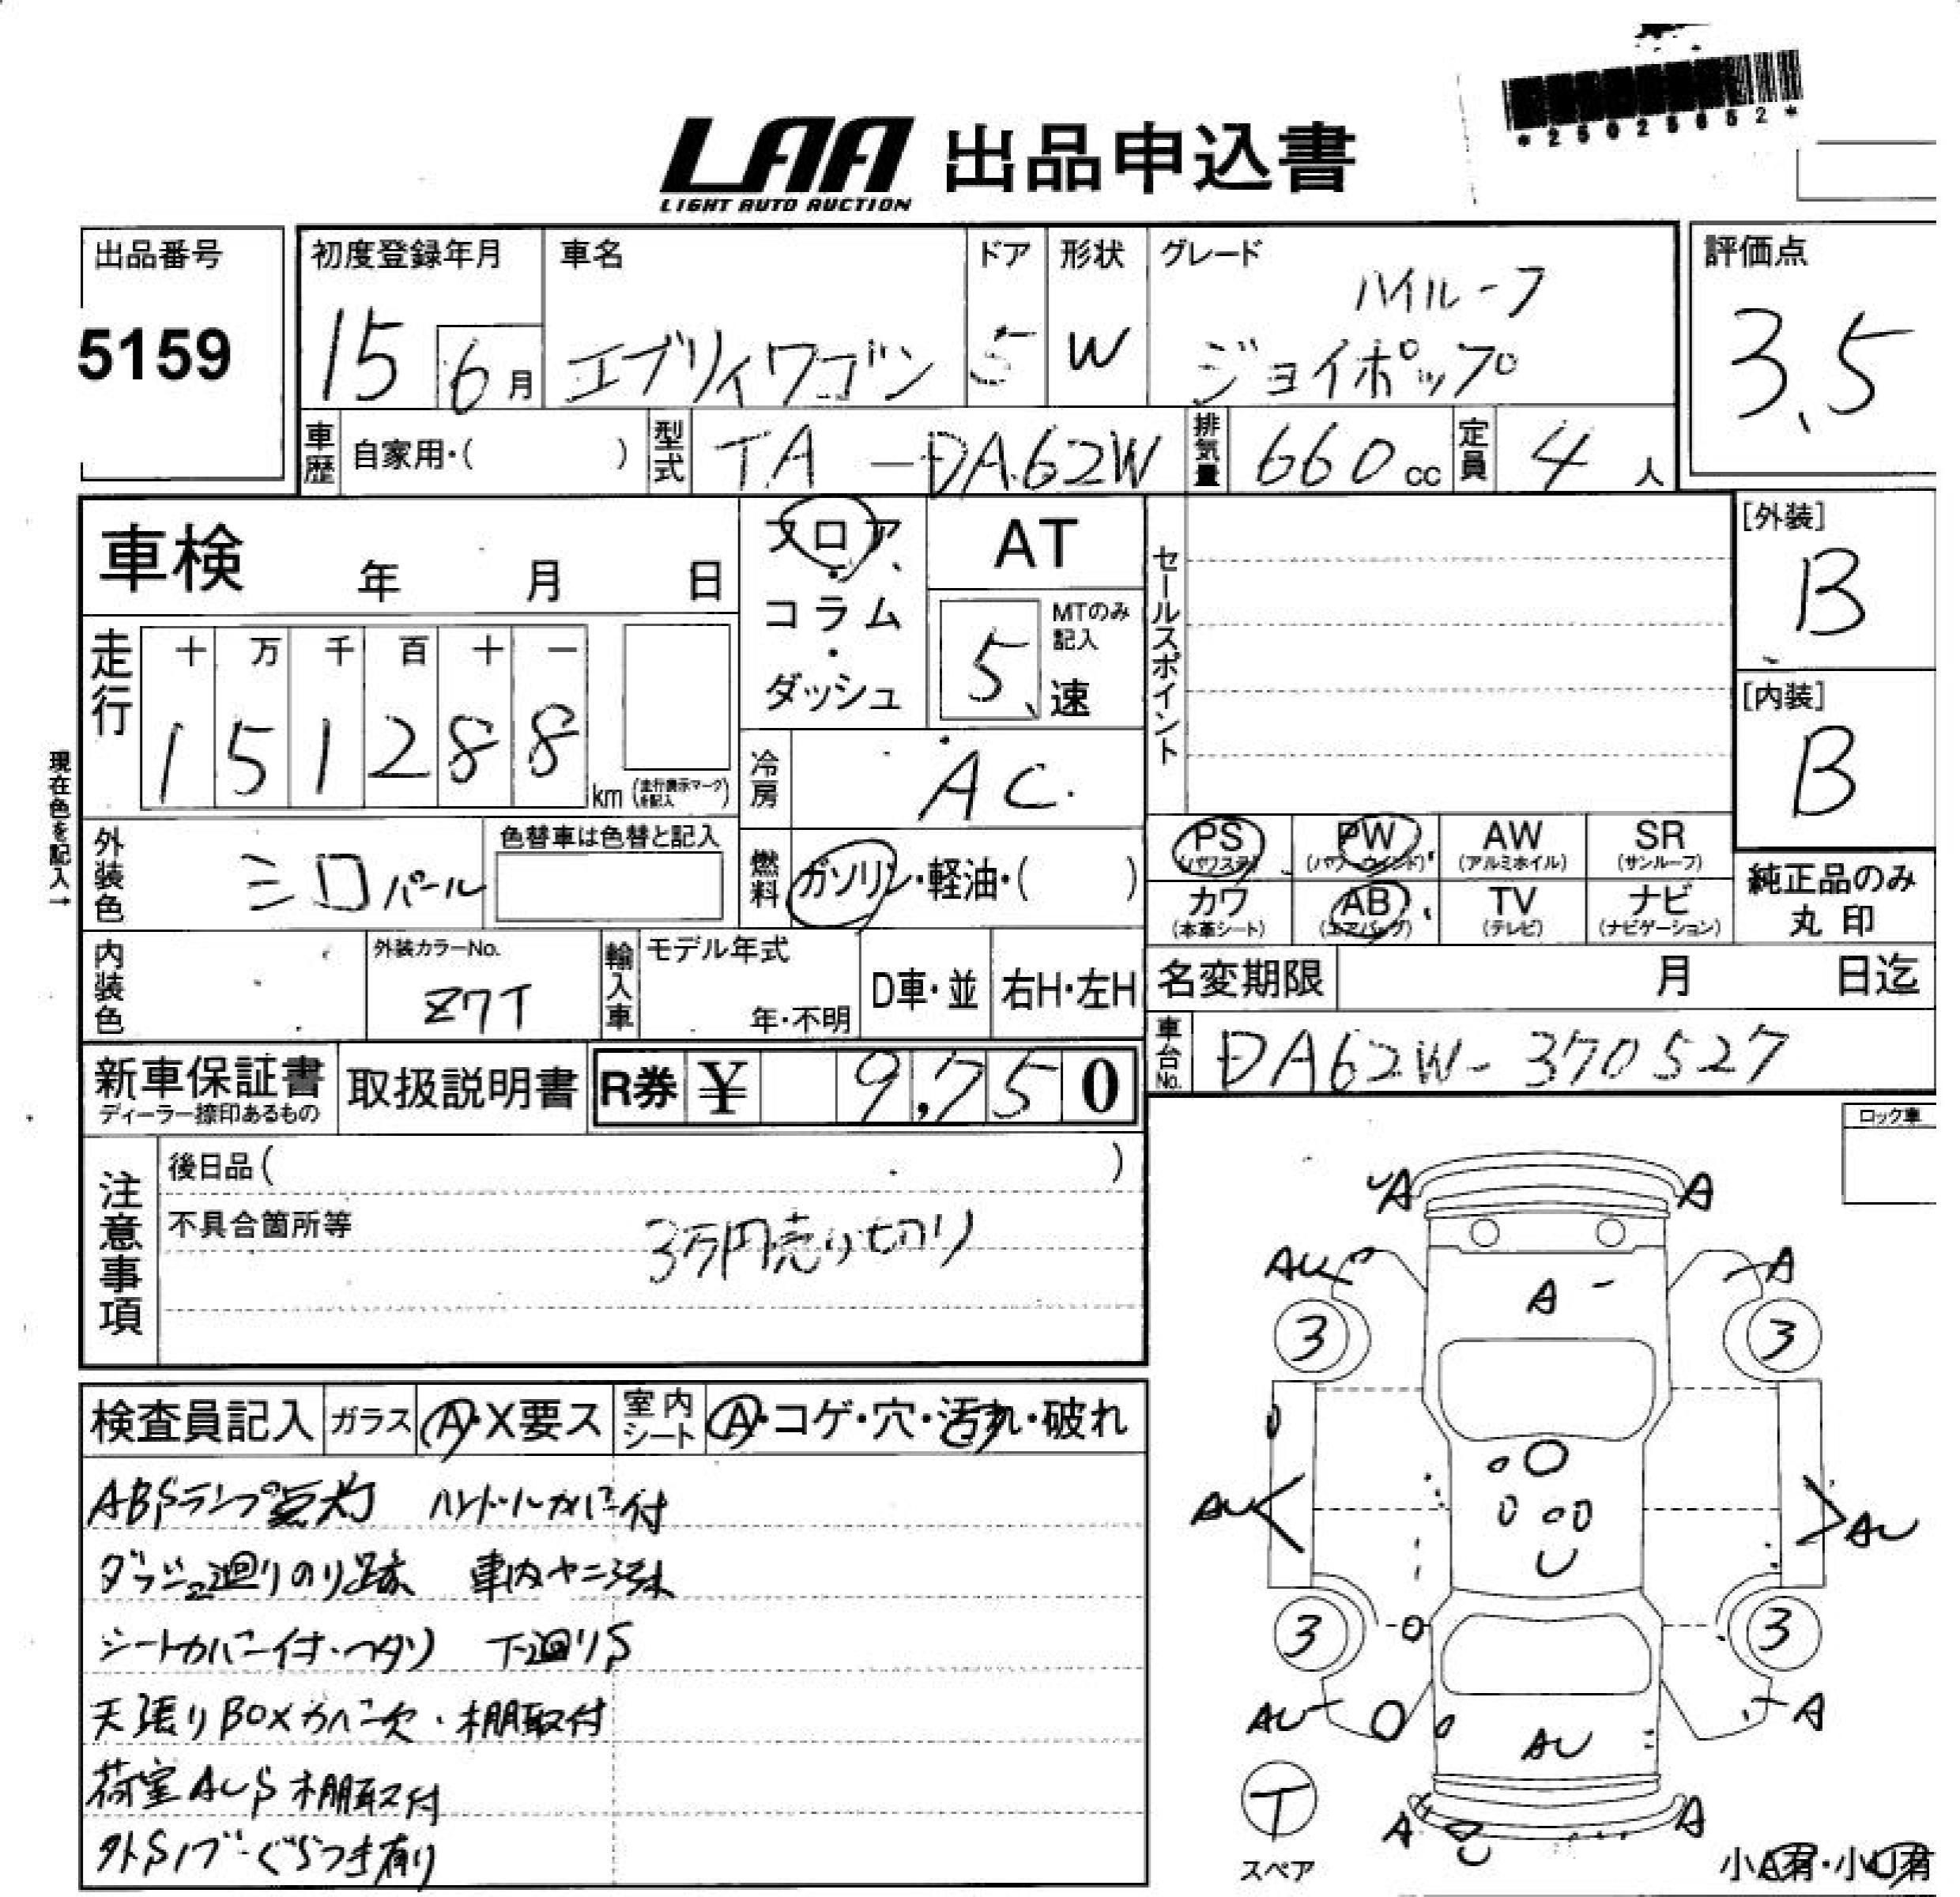 *25025652*
LAA 出品申込書
LIGHT AUTO AUCTION
出品番号
5159
初度登録年月
15 6月
車名
エブリイワゴン
ドア
5
形状
W
グレード
ハイルーフ
ジョイポップ
評価点
3.5
車歴 自家用・( )
型式 TA-DA62W
排気量 660cc
定員 4人
車検 年 月 日
フロア・コラム・ダッシュ
AT
MTのみ記入
5速
セールスポイント
[外装]
B
[内装]
B
走行
十 万 千 百 十 一
1 5 1 2 8 8 km (走行表示マークを記入)
冷房 AC
現在色を記入→
外装色 シロパール
色替車は色替と記入
燃料 ガソリン・軽油・( )
PS (パワステ) PW (パワーウインド) AW (アルミホイル) SR (サンルーフ)
カワ (本革シート) AB (エアバッグ) TV (テレビ) ナビ (ナビゲーション)
純正品のみ丸印
内装色
外装カラーNo.
Z7T
輸入車 モデル年式 年・不明
D車・並 右H・左H
名変期限 月 日迄
車台No. DA62W-370527
新車保証書
ディーラー捺印あるもの
取扱説明書
R券 ¥ 9,750
注意事項
後日品( )
不具合箇所等
3万円売り切り
検査員記入 ガラス A・X要ス 室内シート A・コゲ・穴・汚れ・破れ
ABSランプ点灯 ハンドルカバー付
ダッシュ廻りのり跡 車内ヤニ汚れ
シートカバー付・ヘタリ 下廻りS
天張りBOXカバー欠・棚取付
荷室AUS 棚取付
外Sノブぐらつき有り
ロック車
A A
AU A
A
3 3
AU AU
3 3
AU A
AU
T
A A
スペア
小A有・小U有